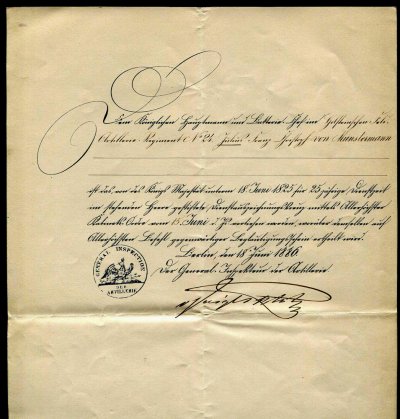 Dem Königlichen Hauptmann und Batterie-Chef im Holsteinschen Feld-
Artillerie-Regiment No 24 Julius Franz Joseph von Münstermann
ist das von des Königs Majestät unterm 18 Juni 1825 für 25 jährige Dienstzeit
im stehenden Heere gestiftete, Dienstauszeichnungskreuz mittels Allerhöchster
Kabinets-Ordre vom 15 Juni d. J. verliehen worden, worüber demselben auf
Allerhöchsten Befehl gegenwärtiger Beglaubigungsschein ertheilt wird.
Berlin, den 18 Juni 1880.
Der General-Inspekteur der Artillerie
GENERAL INSPECTION
DER
ARTILLERIE